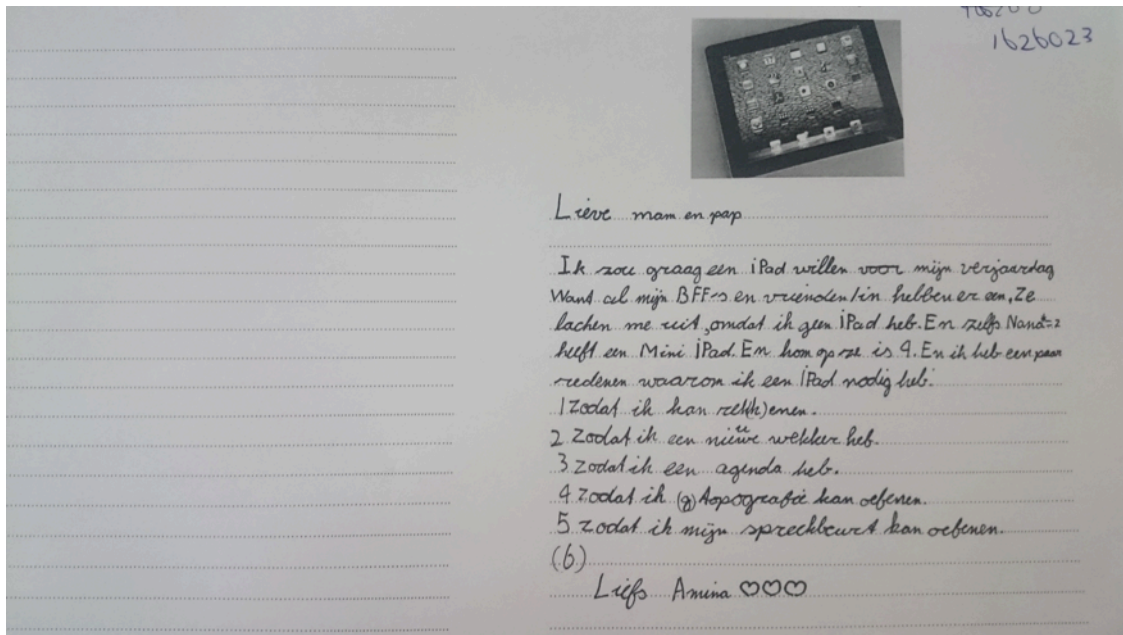 1626023
Lieve mam en pap
Ik zou graag een iPad willen voor mijn verjaardag
Want al mijn BFF's en vrienden/in hebben er een, Ze
lachen me uit, omdat ik geen iPad heb. En zelfs
heeft een Mini iPad. En kom op ze is 4. En ik heb een paar
redenen waarom ik een iPad nodig heb:
1 Zodat ik kan rek(k)enen.
2 Zodat ik een nieuwe wekker heb.
3 Zodat ik een agenda heb.
4 Zodat ik (g) topografie kan oefenen.
5 Zodat ik mijn spreekbeurt kan oefenen.
(6)
Liefs Amina ♡♡♡